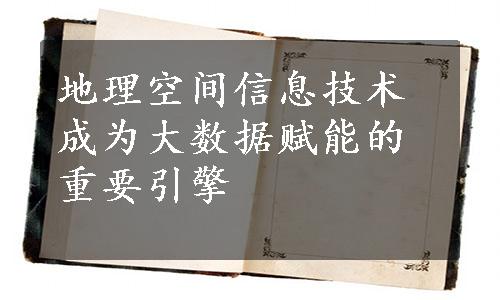 地理空间信息技术
成为大数据赋能的
重要引擎